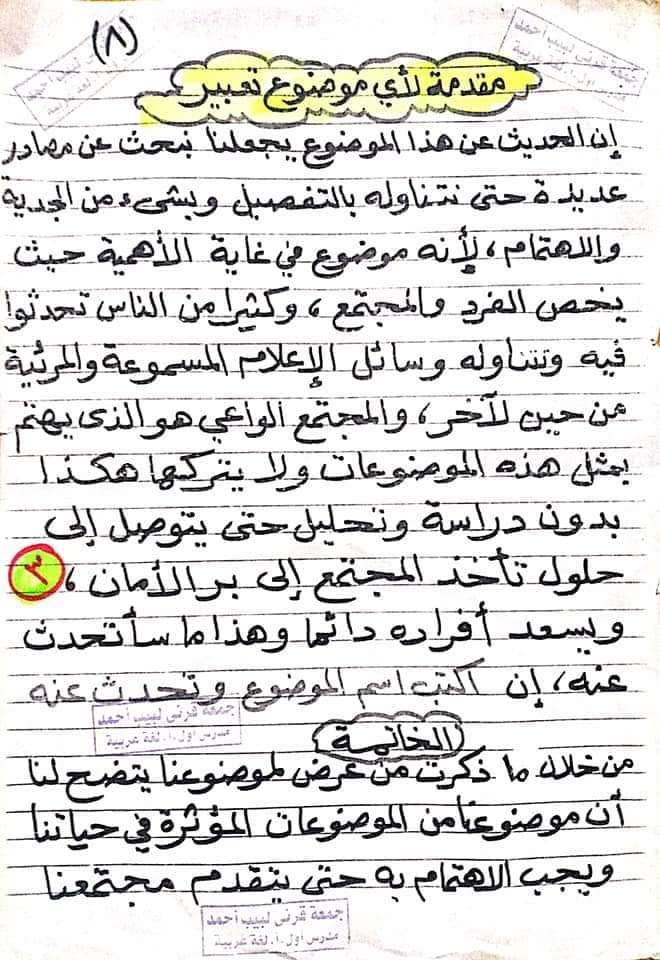 (٨)
جمعة قرنى لبيب أحمد
جمعة قرنى لبيب أحمد
مدرس أول أ. لغة عربية
مقدمة لأي موضوع تعبير
إن الحديث عن هذا الموضوع يجعلنا نبحث عن مصادر
عديدة حتى نتناوله بالتفصيل وبشىء من الجدية
والاهتمام، لأنه موضوع في غاية الأهمية حيث
يخص الفرد والمجتمع، وكثيرا من الناس تحدثوا
فيه وتتناوله وسائل الإعلام المسموعة والمرئية
من حين لآخر، والمجتمع الواعي هو الذى يهتم
بمثل هذه الموضوعات ولا يتركها هكذا
بدون دراسة وتحليل حتى يتوصل إلى
حلول تأخذ المجتمع إلى بر الأمان، ٣
ويسعد أفراده دائما وهذا ما سأتحدث
عنه، إن اكتب اسم الموضوع وتحدث عنه
جمعة قرنى لبيب أحمد
مدرس أول أ. لغة عربية
الخاتمة
من خلال ما ذكرت من عرض لموضوعنا يتضح لنا
أن موضوعنا من الموضوعات المؤثرة في حياتنا
ويجب الاهتمام به حتى يتقدم مجتمعنا
جمعة قرنى لبيب أحمد
مدرس أول أ. لغة عربية